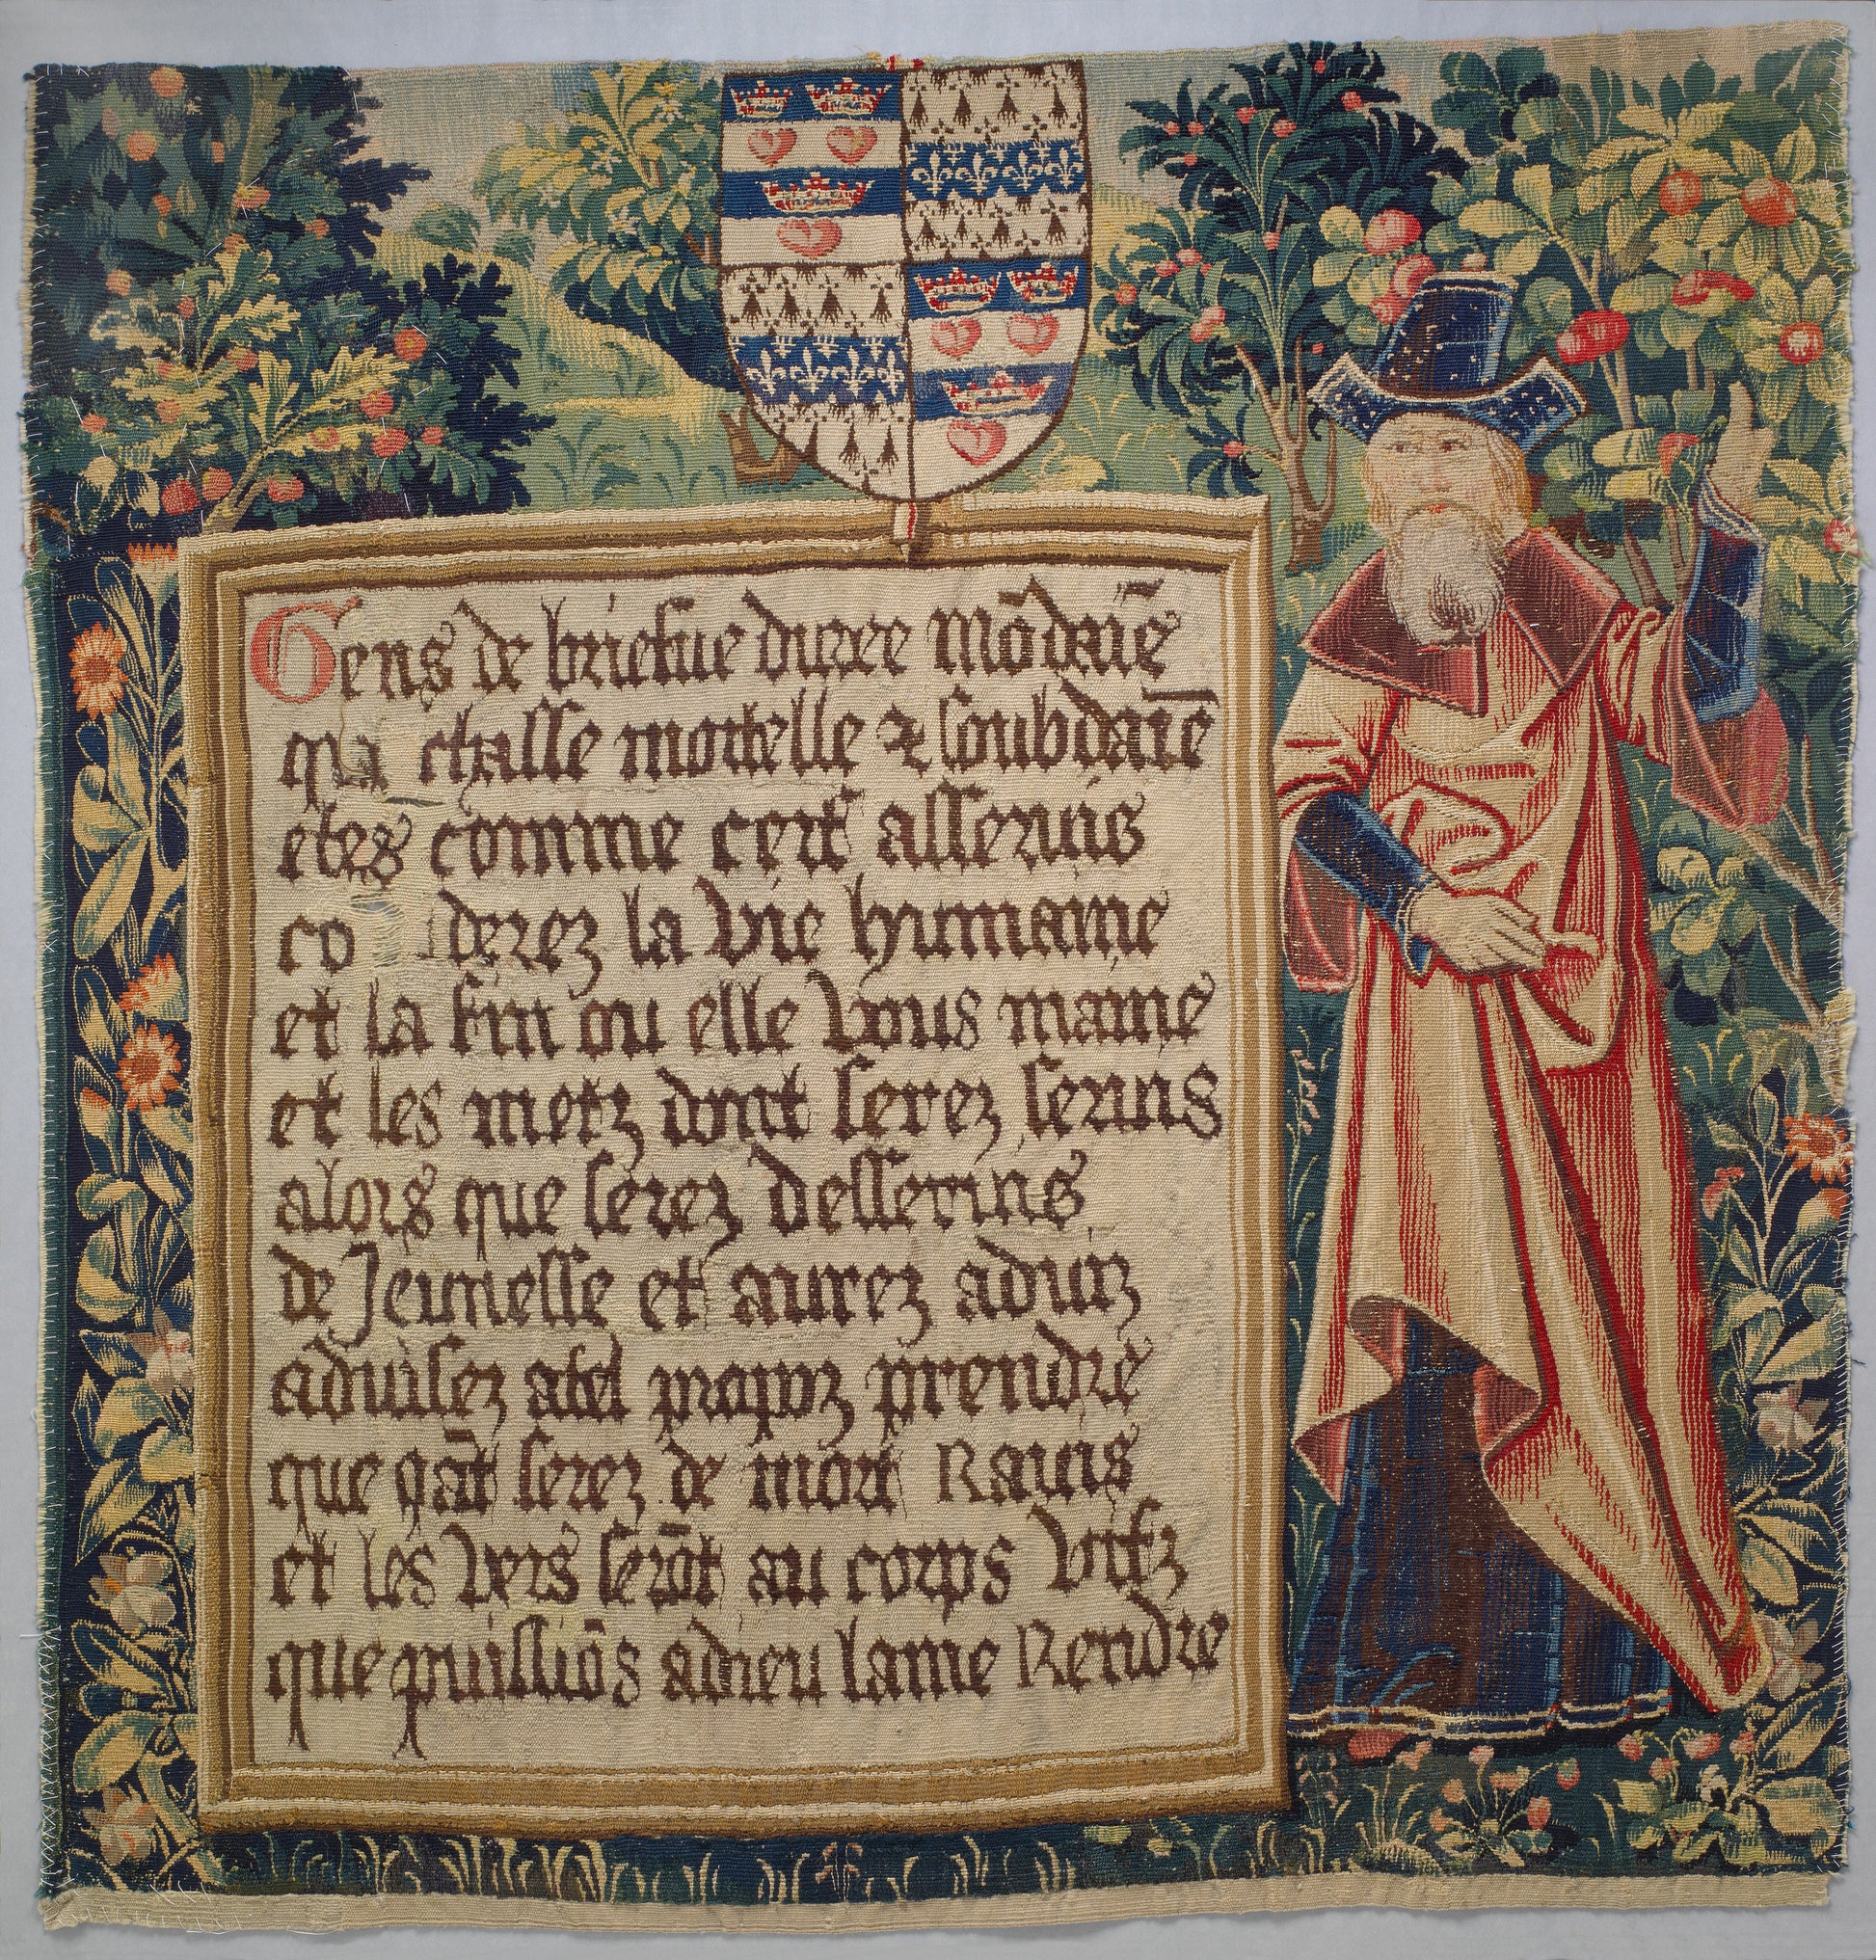 Gens de briefue duree mōdaīe
qui chasse mortelle & soubdaīe
etes comme cerf asseruis
derez la vie humaine
et la fin ou elle vous maine
et les metz dont serez seruis
alors que serez desseruis
de Jeunesse et aurez aduiz
aduisez a tel propoz prendre
que qāt serez de mort Rauis
et les vers serōt au corps vifz
que puissiōs a dieu lame Rendre